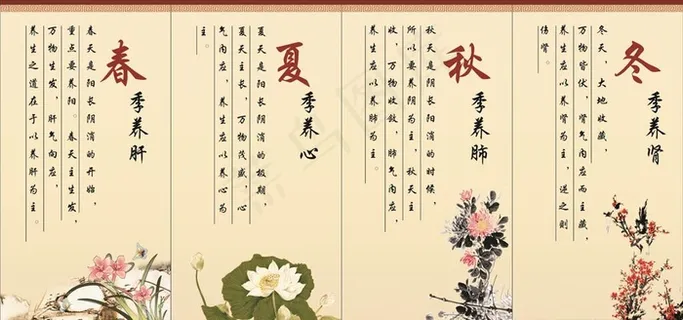 春季养肝
春天是阳长阴消的开始，
重点要养阳。春天主生发，
万物生发，肝气内应，
养生之道在于以养肝为主。
夏季养心
夏天是阳长阴消的极期，
夏天主长，万物茂盛，心
气内应，养生应以养心为
主。
秋季养肺
秋天是阴长阳消的时候，
所以要养阴为主，秋天主
收，万物收敛，肺气内应，
养生应以养肺为主。
冬季养肾
冬天，大地收藏，
万物皆伏，肾气内应而主藏，
养生应以养肾为主，逆之则
伤肾。